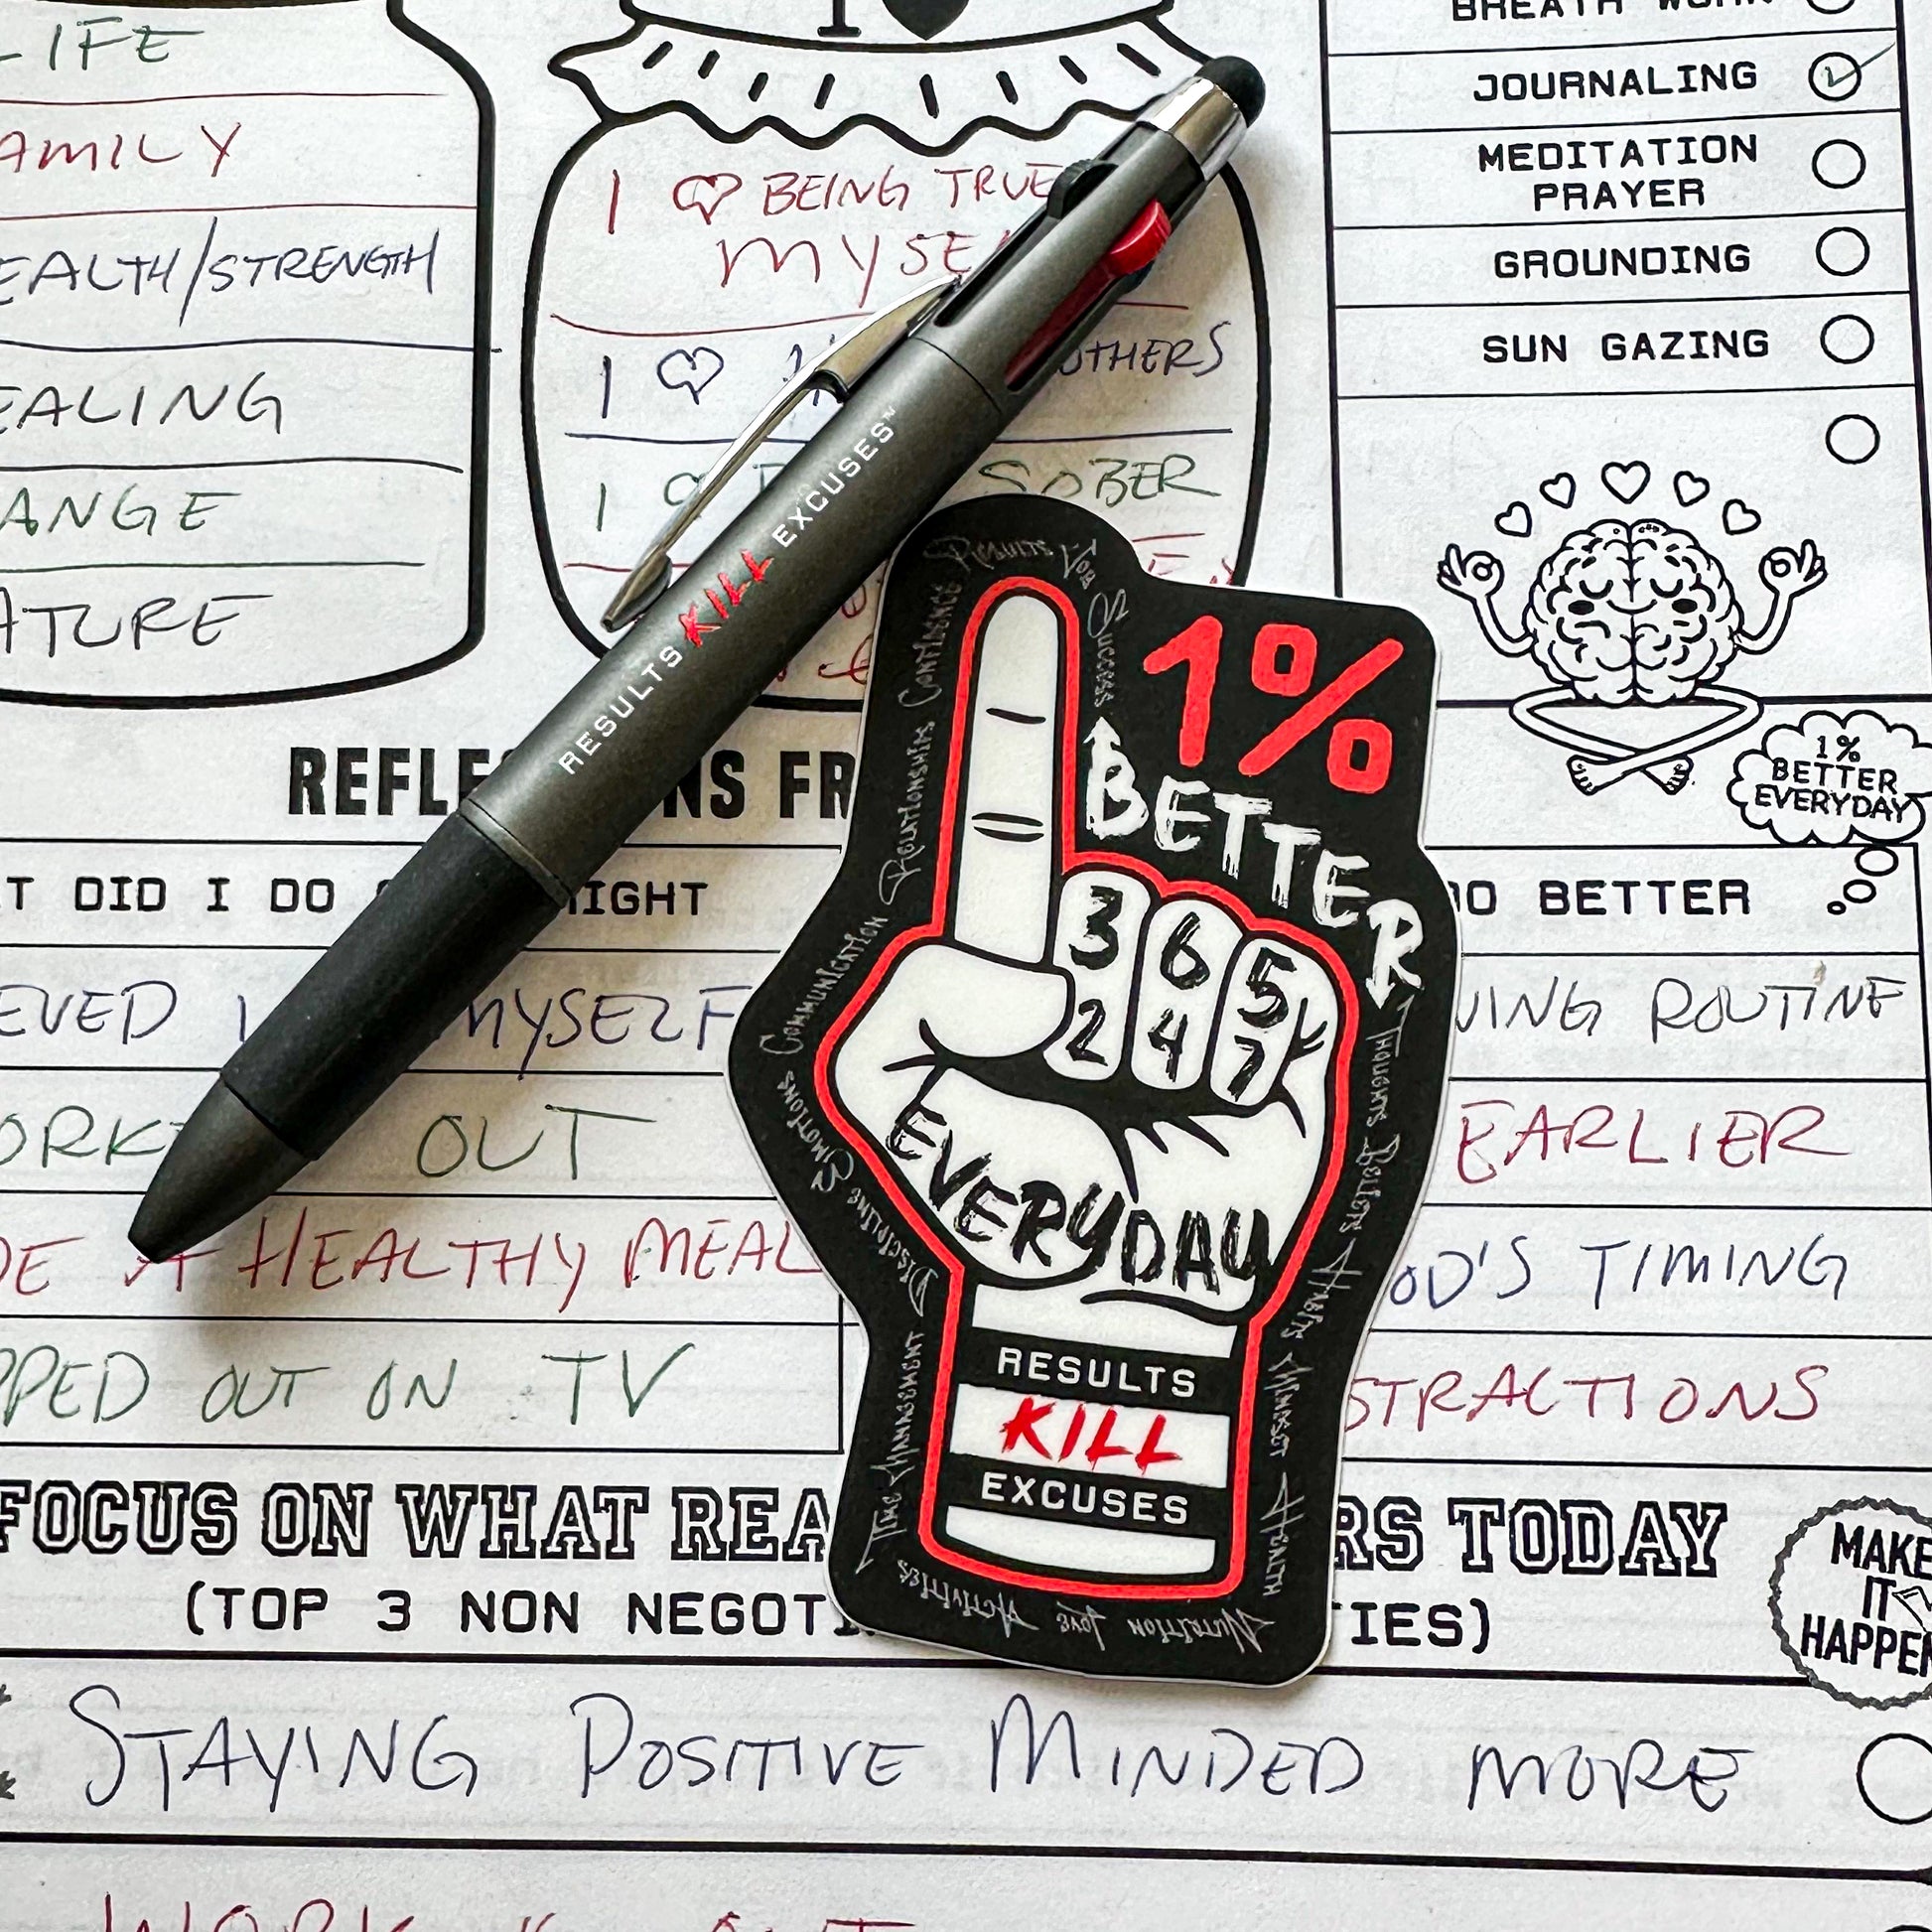 LIFE
AMILY
EALTH/STRENGTH
EALING
ANGE
ATURE
I
I BEING TRUE
MYSE
I OTHERS
I SOBER
BREATH WORK
JOURNALING
MEDITATION
PRAYER
GROUNDING
SUN GAZING
1%
BETTER
EVERYDAY
RESULTS KILL EXCUSES™
REFLE NS FR
T DID I DO IGHT
O BETTER
EVED MYSELF
ORK OUT
DE A HEALTHY MEAL
PPED OUT ON TV
NING ROUTINE
EARLIER
OD'S TIMING
STRACTIONS
1%
BETTER
3 6 5
2 4 7
EVERYDAY
RESULTS
KILL
EXCUSES
Time Management Discipline Emotions Communication Relationships Confidence Results Joy Success
Thoughts Beliefs Habits Mindset Health
Nutrition Love Activities
FOCUS ON WHAT REA RS TODAY
(TOP 3 NON NEGOT TIES)
MAKE
IT
HAPPEN
STAYING POSITIVE MINDED MORE
WORK OUT